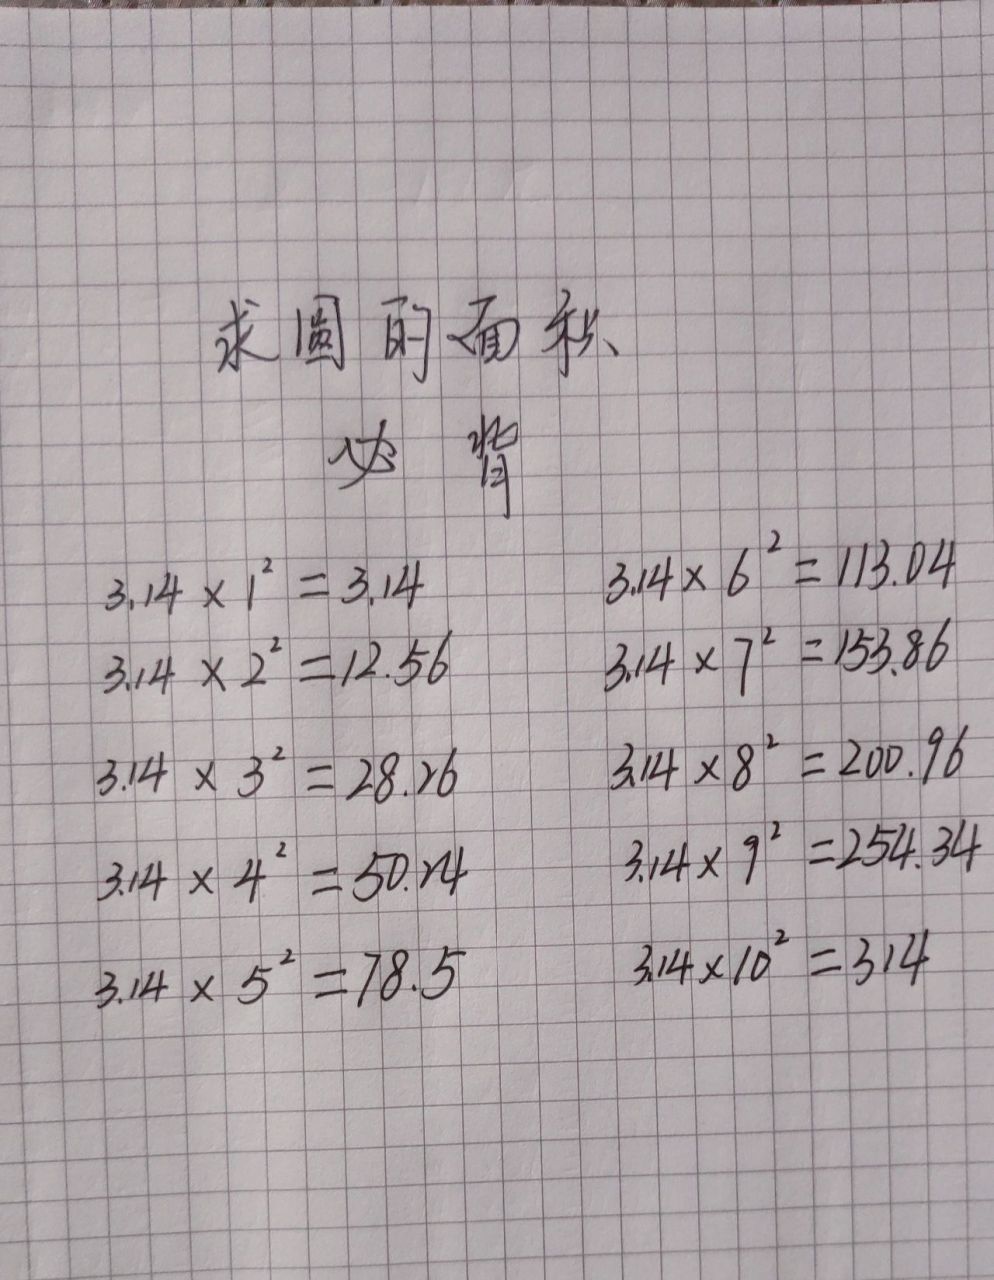 求圆的面积
必背
3.14 × 1² = 3.14
3.14 × 2² = 12.56
3.14 × 3² = 28.26
3.14 × 4² = 50.24
3.14 × 5² = 78.5
3.14 × 6² = 113.04
3.14 × 7² = 153.86
3.14 × 8² = 200.96
3.14 × 9² = 254.34
3.14 × 10² = 314